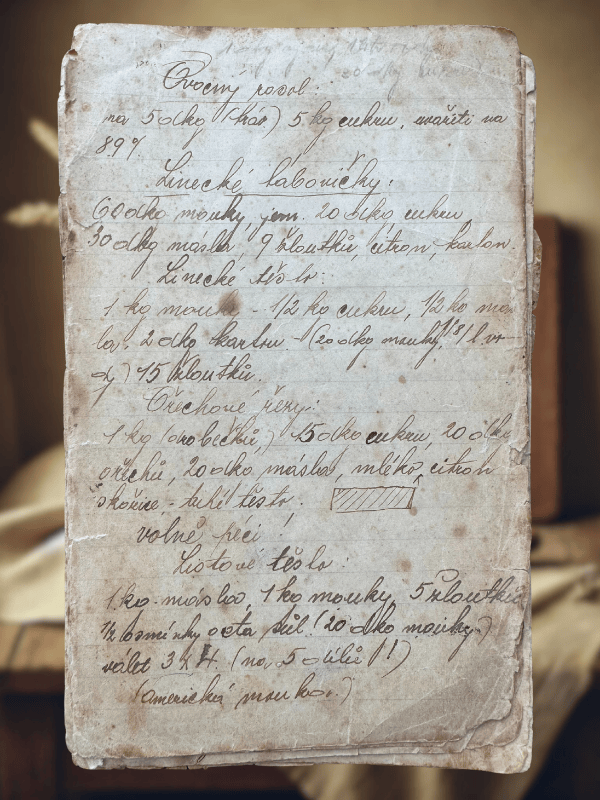 Ovocný rosol:
na 5 dkg (ház.) 5 kg cukru, svařiti na
89%
Linecké bábovičky:
60 dkg mouky, jem. 20 dkg cukru,
30 dkg másla, 9 žloutků, citron, karbon.
Linecké těsto:
1 kg mouki - 1/2 kg cukru, 1/2 kg más
la. 2 dkg karbon - (20 dkg mouky, 1/8 l vo-
dy) 15 žloutků.
Ořechové řezy:
1 kg (drobečků,) 45 dkg cukru, 20 dkg
ořechů, 20 dkg másla, mléko, citron
skořice - tuhé těsto.
volně péci!
Listové těsto:
1 kg. másla, 1 kg mouky, 5 žloutků
1/2 osminky octa sůl (20 dkg mouky.)
válet 3 x 4. (na 5 dílů!!)
(americká mouka.)